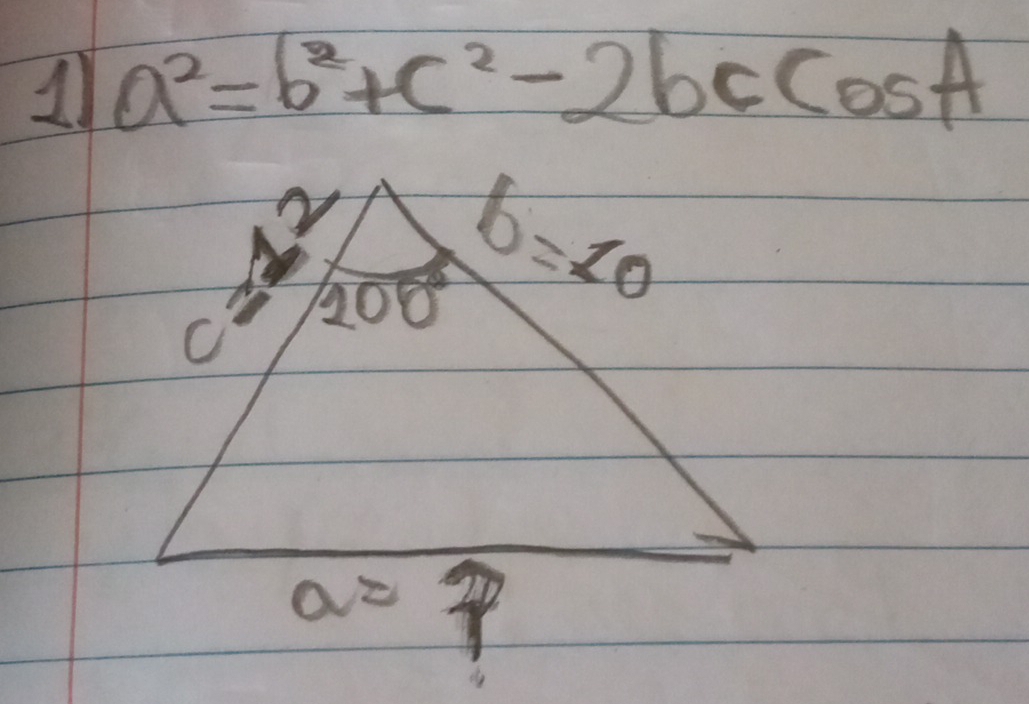 1) a² = b² + c² - 2bc Cos A
c = 12
b = 10
100°
a = ?